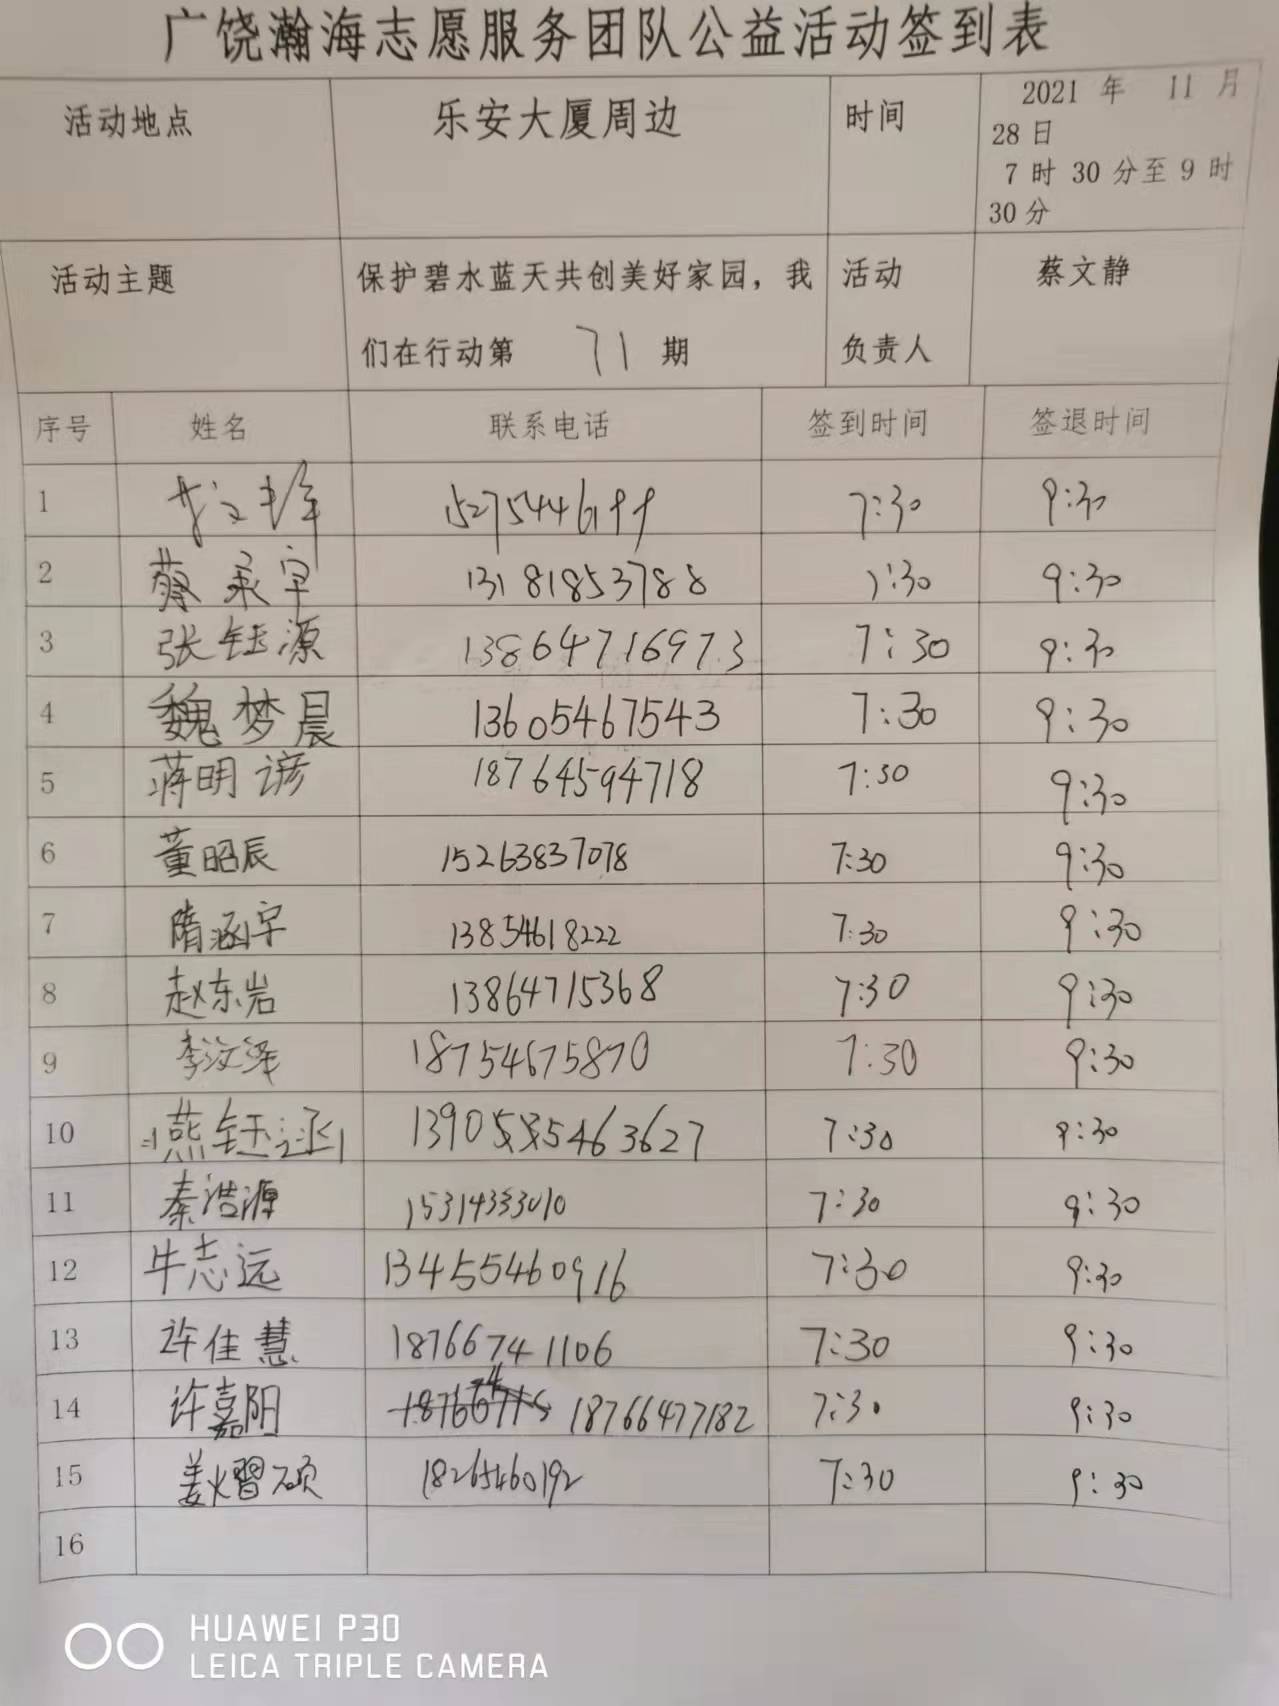 广饶瀚海志愿服务团队公益活动签到表
活动地点 乐安大厦周边 时间 2021 年 11 月
28 日
7 时 30 分至 9 时
30 分
活动主题 保护碧水蓝天共创美好家园，我 活动 蔡文静
们在行动第 71 期 负责人
序号 姓名 联系电话 签到时间 签退时间
1 15275446199 7:30 9:30
2 蔡承宇 13181853788 7:30 9:30
3 张钰源 13864716973 7:30 9:30
4 魏梦晨 13605467543 7:30 9:30
5 蒋明谚 18764594718 7:30 9:30
6 董昭辰 15263837078 7:30 9:30
7 隋涵宇 13854618222 7:30 9:30
8 赵东岩 13864715368 7:30 9:30
9 李汶泽 18754675870 7:30 9:30
10 燕钰涵 7:30 9:30
11 秦浩源 15314333010 7:30 9:30
12 牛志远 13455460916 7:30 9:30
13 许佳慧 18766741106 7:30 9:30
14 许嘉阳 18766477182 7:30 9:30
15 姜熠硕 18265460192 7:30 9:30
16
HUAWEI P30
LEICA TRIPLE CAMERA